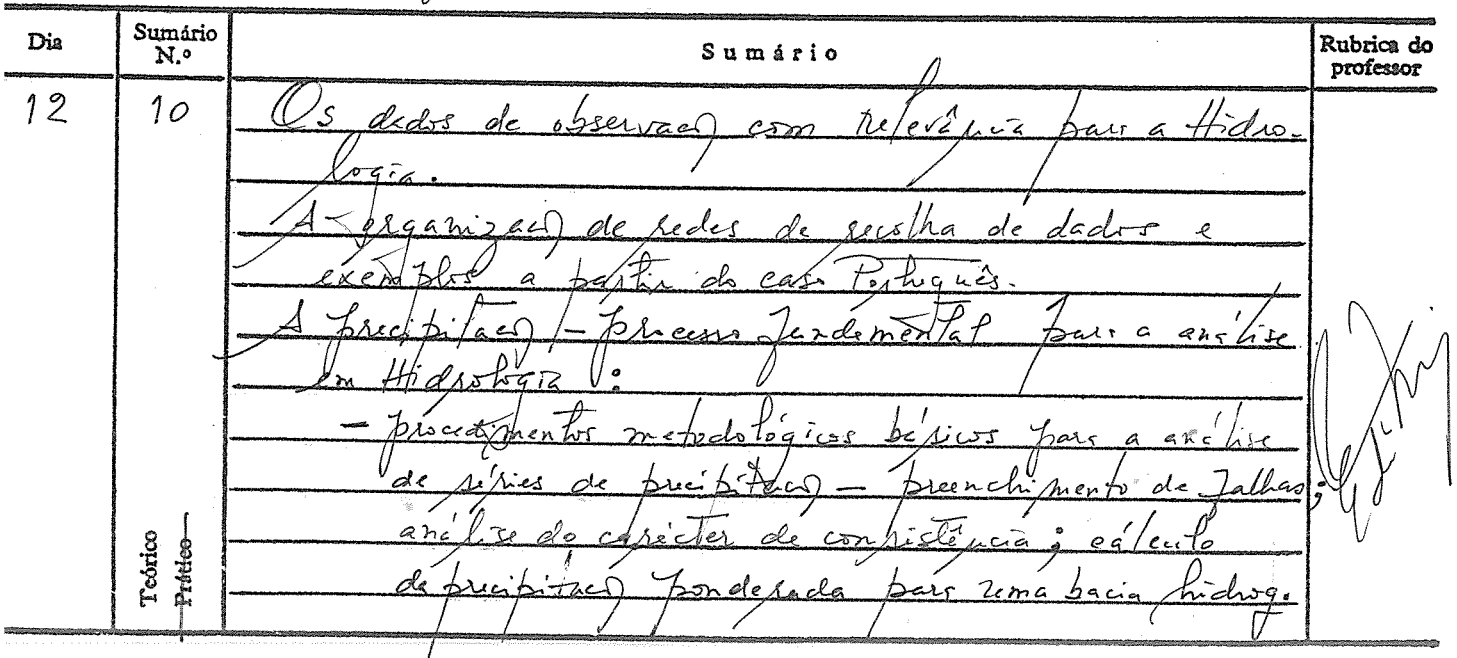 Dia Sumário N.º Sumário Rubrica do professor
12 10 Os dados de observação com relevância para a Hidro-
logia.
A organização de redes de recolha de dados e
exemplos a partir do caso Português.
A precipitação - processo fundamental para a análise
em Hidrologia:
- procedimentos metodológicos básicos para a análise
de séries de precipitação - preenchimento de falhas;
análise do carácter de consistência; cálculo
da precipitação ponderada para uma bacia hidrog.
Teórico
Prático